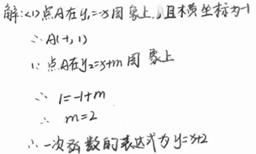 解:<1>点A在y₁=-x图象上,且横坐标为-1
∴A(-1,1)
∵点A在y₂=x+m图象上
∴1=-1+m
∴m=2
∴一次函数的表达式为y=x+2